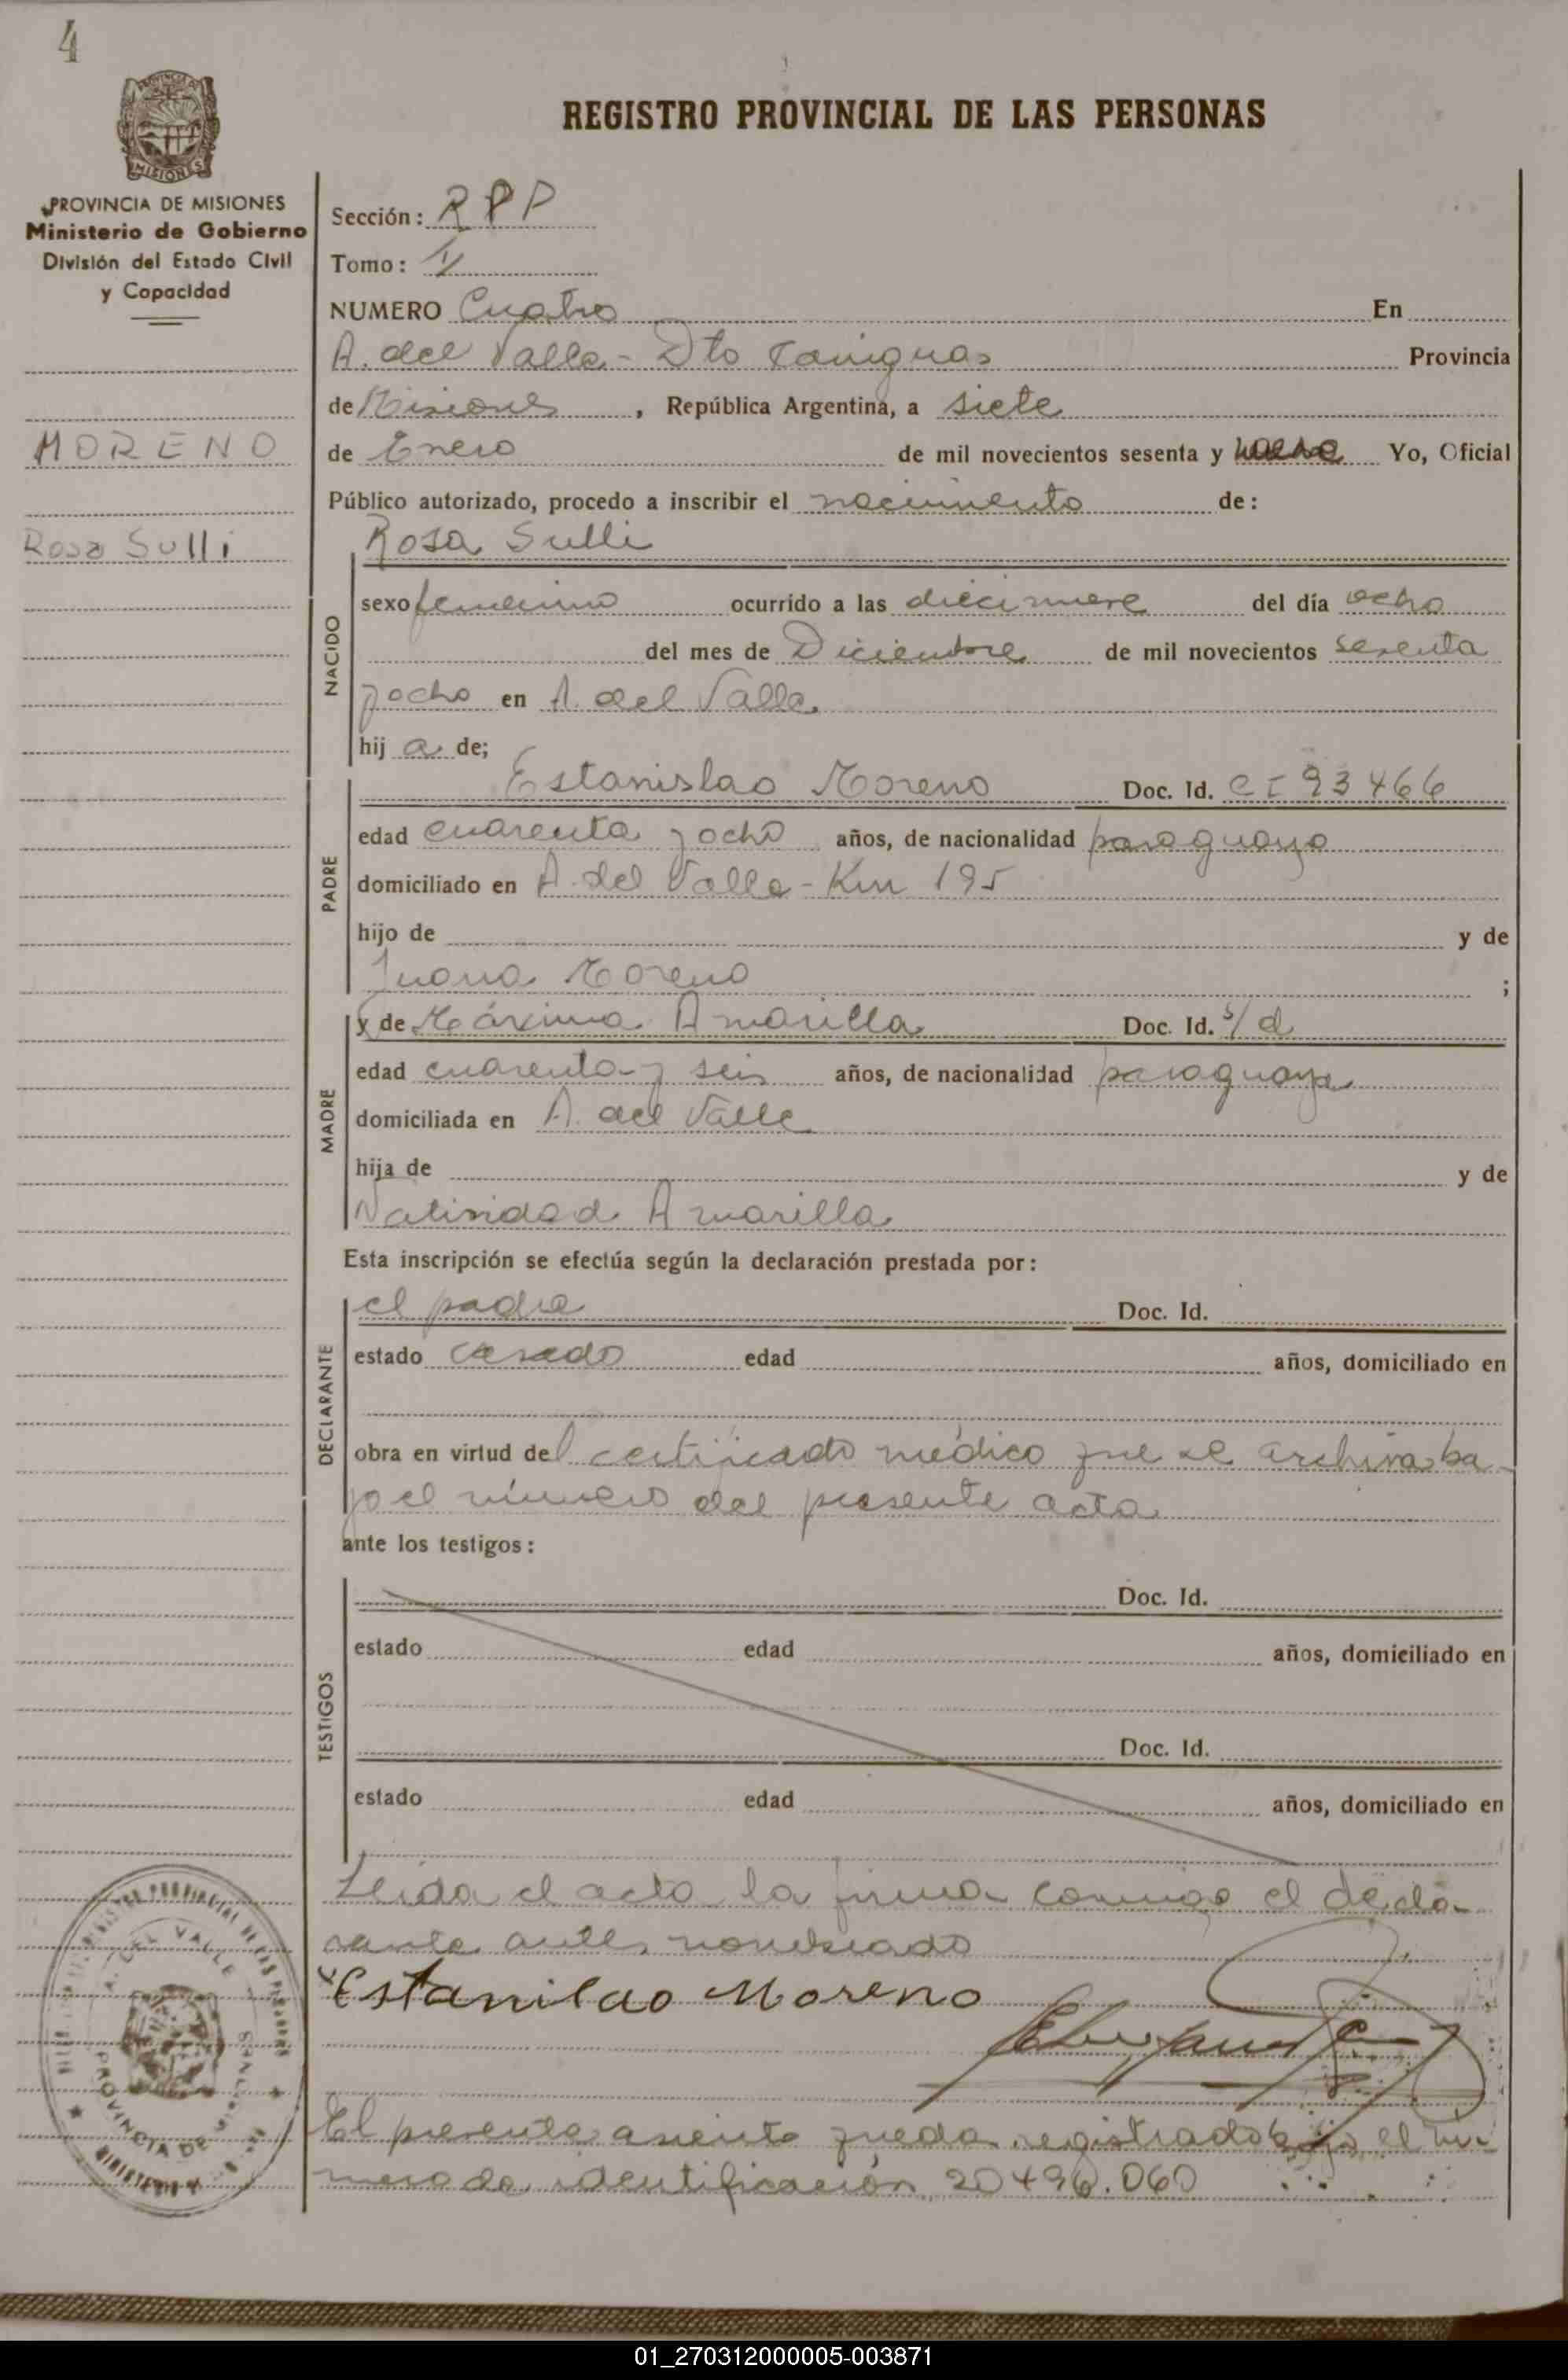 4
REGISTRO PROVINCIAL DE LAS PERSONAS
MISIONES
PROVINCIA DE MISIONES
Ministerio de Gobierno
División del Estado Civil
y Capacidad
MORENO
Rosa Sulli
Sección: RPP
Tomo: I
NUMERO Cuatro En
A. del Valle - Dto Cainguas Provincia
de Misiones, República Argentina, a siete
de Enero de mil novecientos sesenta y nueve Yo, Oficial
Público autorizado, procedo a inscribir el nacimiento de:
Rosa Sulli
NACIDO
sexo femenino ocurrido a las diecinueve del día ocho
del mes de Diciembre de mil novecientos sesenta
y ocho en A. del Valle
hij a de;
PADRE
Estanislao Moreno Doc. Id. CI 93466
edad cuarenta y ocho años, de nacionalidad paraguaya
domiciliado en A. del Valle - Km 195
hijo de y de
Juana Moreno ;
MADRE
y de Máxima Amarilla Doc. Id. s/d
edad cuarenta y seis años, de nacionalidad paraguaya
domiciliada en A. del Valle
hija de y de
Natividad Amarilla
Esta inscripción se efectúa según la declaración prestada por:
DECLARANTE
el padre Doc. Id.
estado casado edad años, domiciliado en
obra en virtud del certificado médico que se archiva ba-
jo el número del presente acta
ante los testigos:
TESTIGOS
Doc. Id.
estado edad años, domiciliado en
Doc. Id.
estado edad años, domiciliado en
Leida el acta la firma conmigo el decla-
rante antes nombrado
Estanilao Moreno
El presente asiento queda registrado bajo el nu-
mero de identificación 20496.060
A. DEL VALLE
PROVINCIA DE
01_270312000005-003871